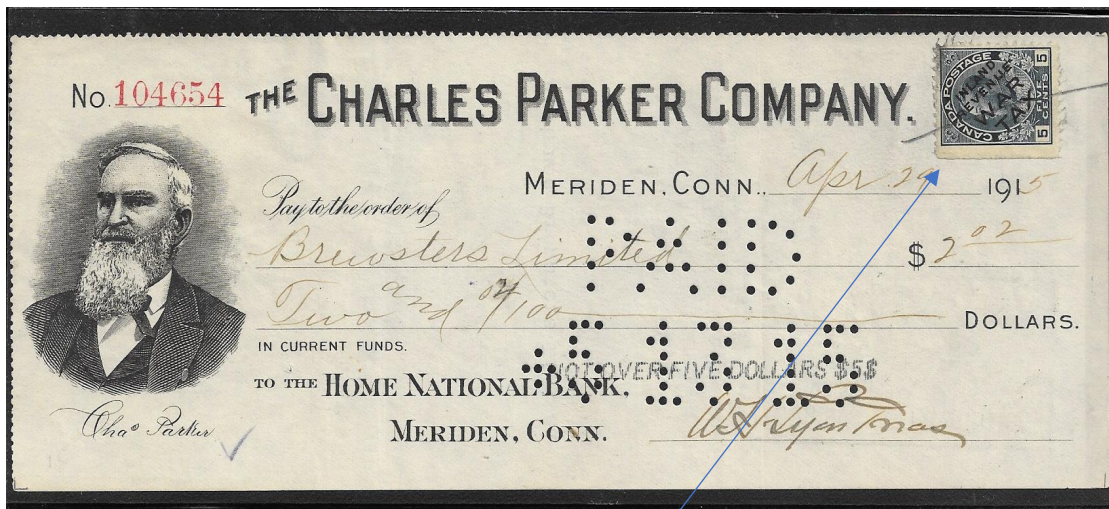 No. 104654
THE CHARLES PARKER COMPANY.
CANADA POSTAGE
INLAND REVENUE
WAR TAX
5 FIVE CENTS 5
MERIDEN, CONN., Apr 29 1915
Pay to the order of
Brewsters Limited $ 2 02
PAID
Two and 02/100 DOLLARS.
IN CURRENT FUNDS.
NOT OVER FIVE DOLLARS $5$
TO THE HOME NATIONAL BANK,
MERIDEN, CONN.
Chas Parker
Treas